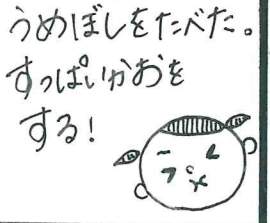 うめぼしをたべた。
すっぱいかおを
する!